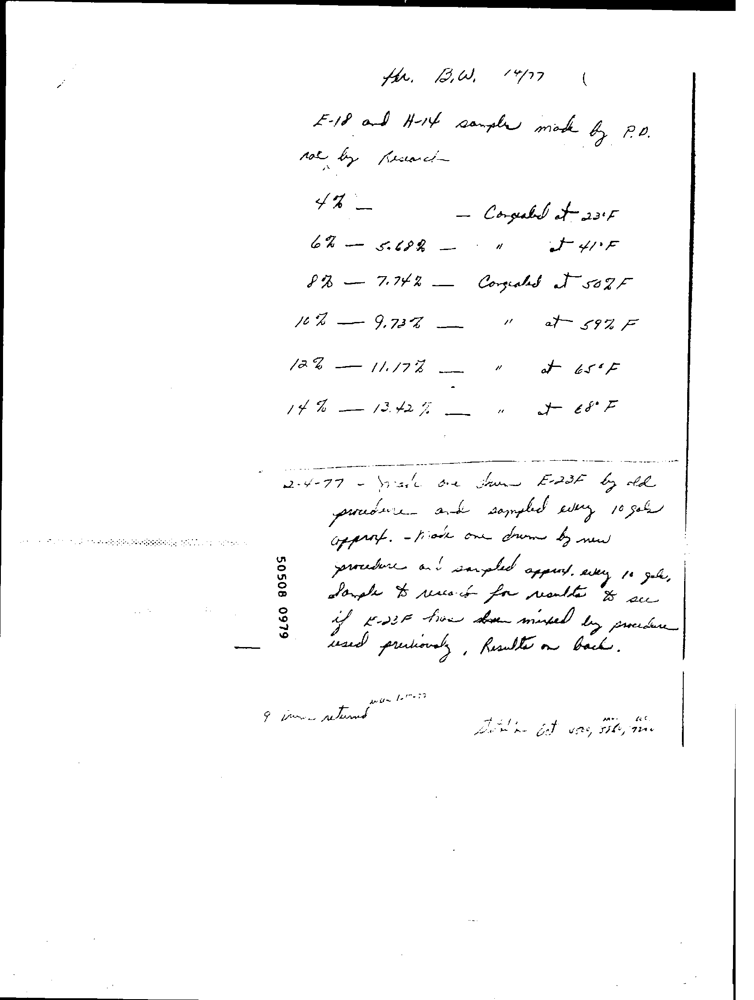 B.W. 14/77
E-18 and H-14 samples made by P.D.
not by Research
4% — — Congealed at 23°F
6% — 5.68% — " at 41°F
8% — 7.74% — Congealed at 50% F
10% — 9.73% — " at 59% F
12% — 11.17% — " at 65°F
14% — 13.42% — " at 68°F
2-4-77 - Made one drum E-23F by old
procedure and sampled every 10 gals
approx. - Made one drum by new
procedure and sampled approx. every 10 gals.
Sample to research for results to see
if E-23F has been mixed by procedure
used previously, Results on back.
50508 0979
9 returned